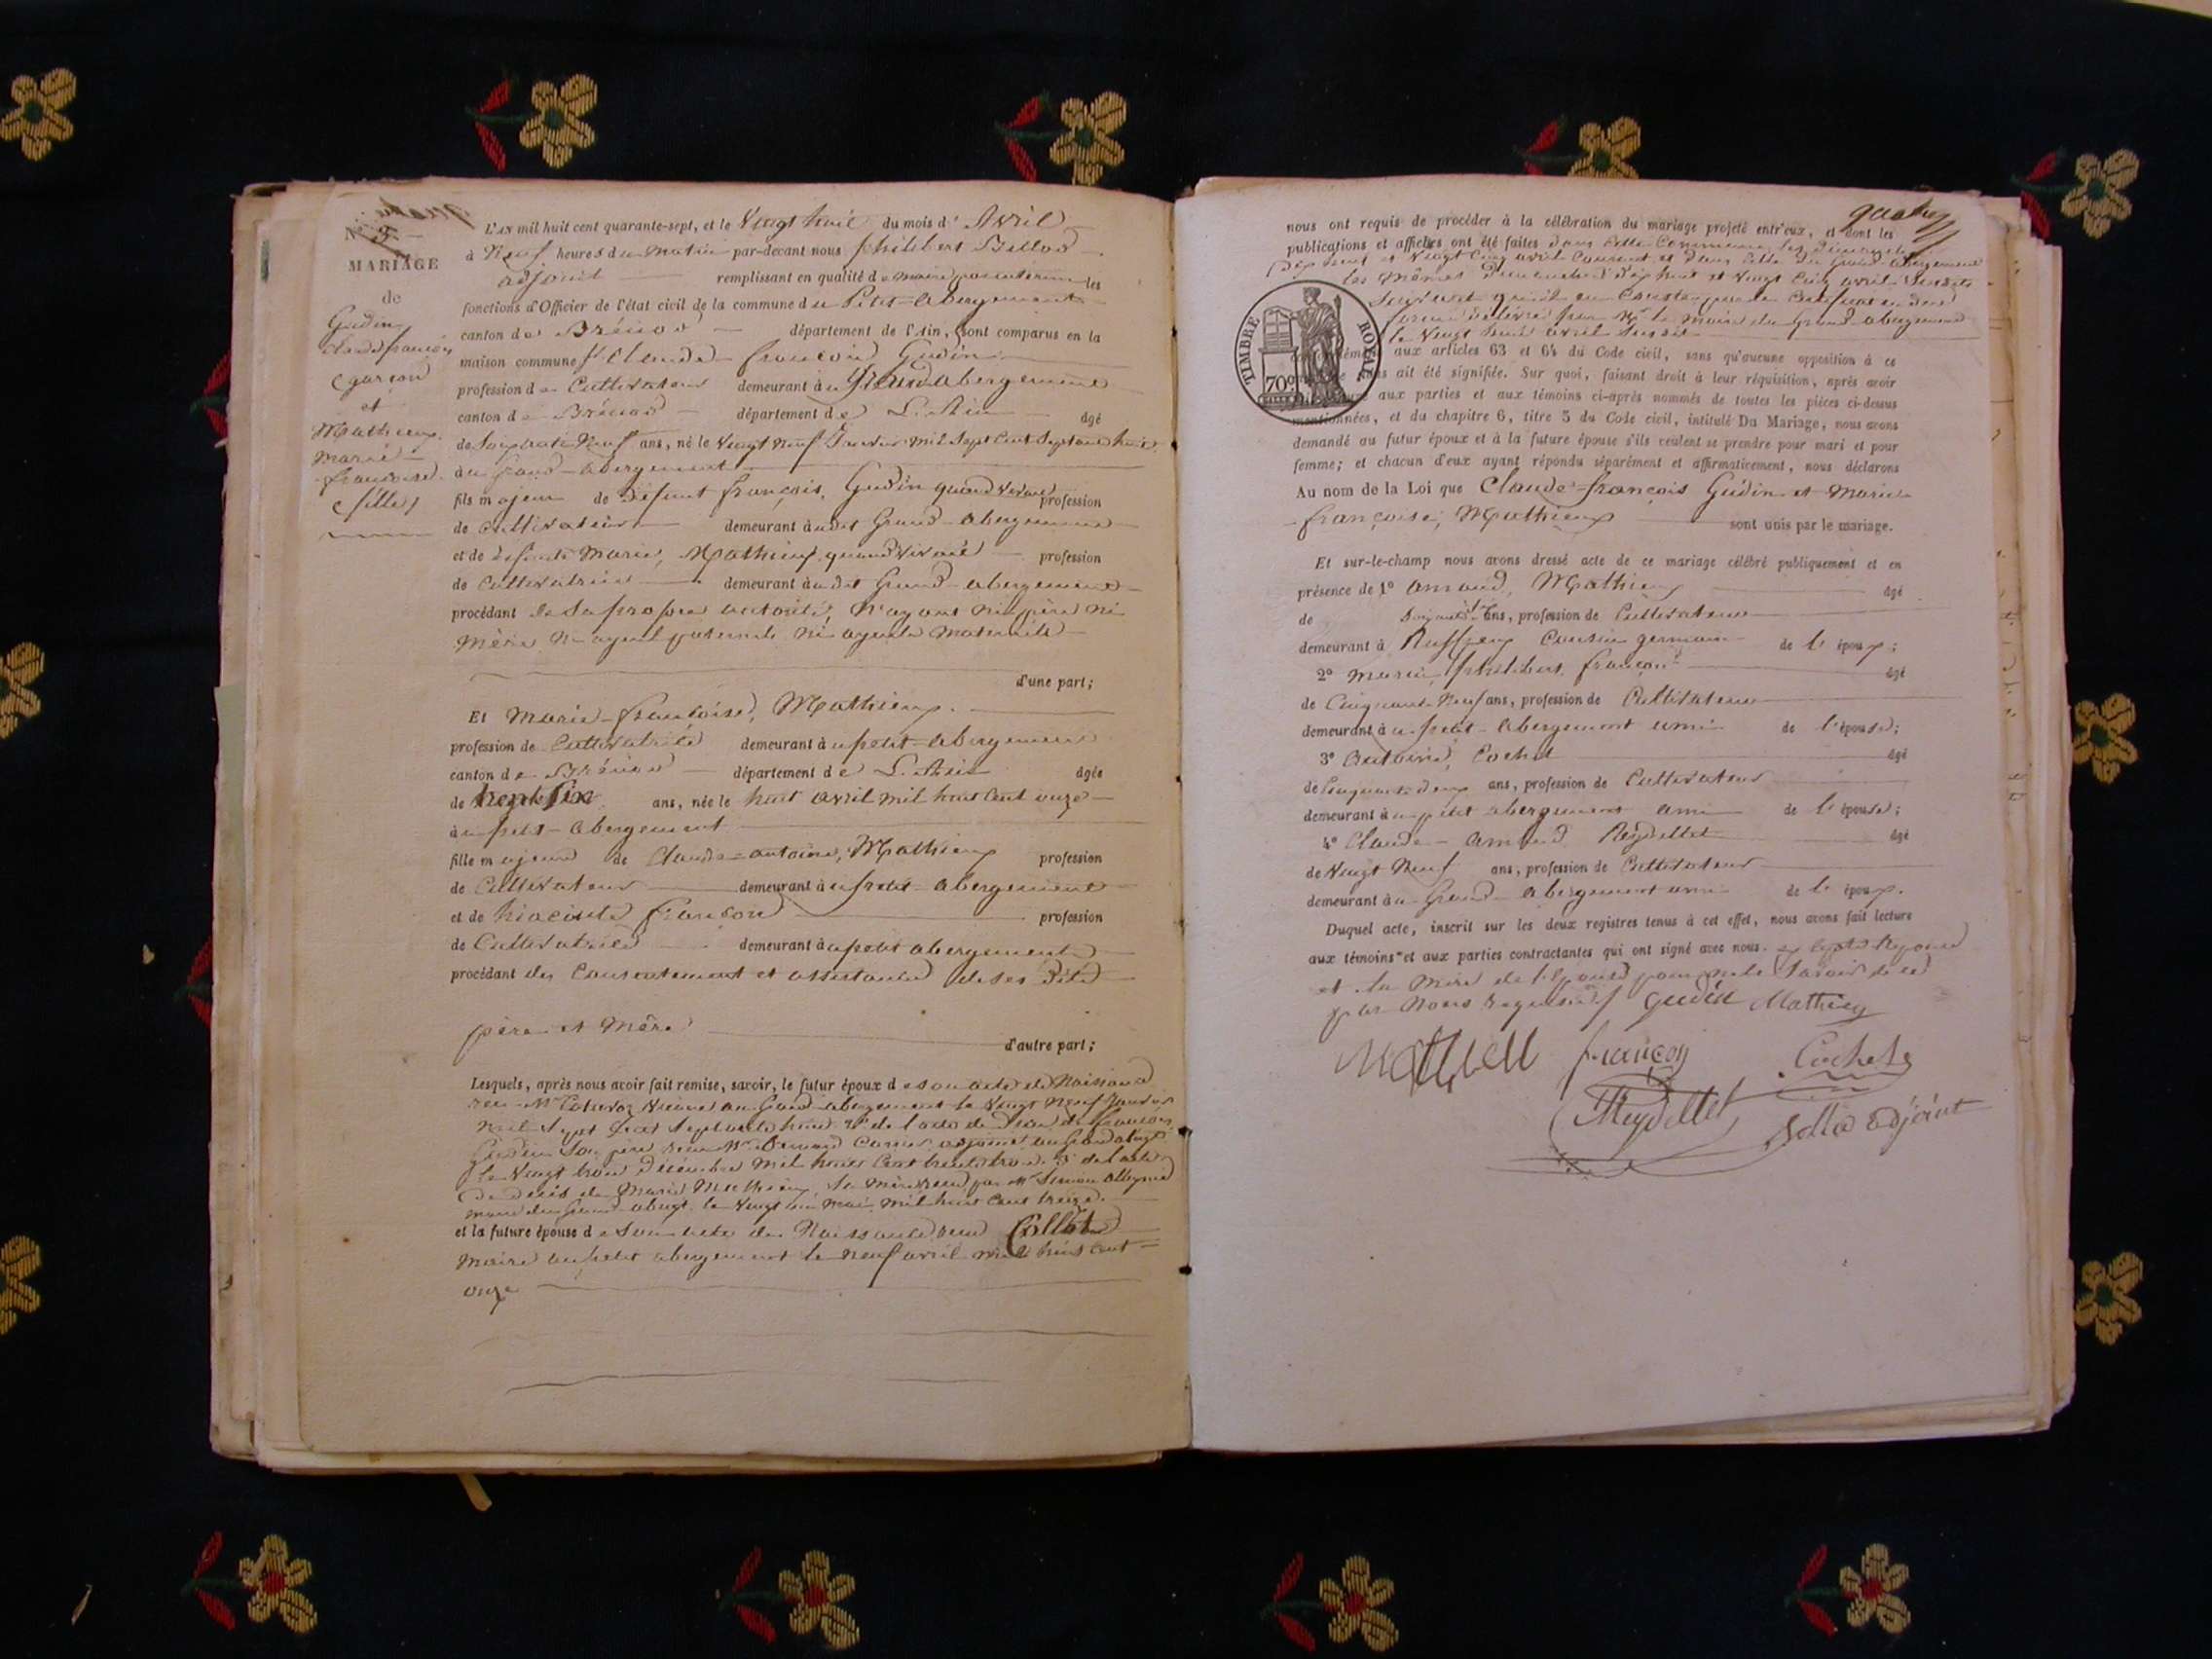 N° 3
MARIAGE
de
Gudin
Claude françois
(garçon)
et
Mathieux
Marie
françoise
(fille)
L'AN mil huit cent quarante-sept, et le Vingt huit du mois d'Avril
à Neuf heures du matin par-devant nous philibert Billod
adjoint remplissant en qualité de maire par interim les
fonctions d'Officier de l'état civil de la commune du Petit-abergement
canton de Brénod département de l'Ain, sont comparus en la
maison commune Claude françois Gudin
profession de Cultivateur demeurant à Grand abergement
canton de Brénod département de L'Ain âgé
de Soixante Neuf ans, né le Vingt neuf Janvier mil sept cent septante huit
au grand-abergement
fils majeur de Défunt françois, Gudin quand vivait profession
de cultivateur demeurant audit Grand-abergement
et de défunte Marie, Mathieux quand vivait profession
de Cultivatrice demeurant audit Grand-abergement
procédant de sa propre autorité, n'ayant ni père ni
mère ni ayeul paternels ni ayeuls maternels
d'une part;
Et Marie-françoise, Mathieux
profession de Cultivatrice demeurant au petit-abergement
canton de Brénod département de L'Ain âgée
de trente six ans, née le huit avril mil huit cent onze
au petit-abergement
fille majeure de Claude-antoine, Mathieux profession
de Cultivateur demeurant au petit abergement
et de hiacinte françon profession
de Cultivatrice demeurant au petit abergement
procédant du Consentement et assistance de ses dits
père et mère
d'autre part;
Lesquels, après nous avoir fait remise, savoir, le futur époux de son acte de Naissance
reçu Mr au Grand abergement le Vingt Neuf Janvier
mil sept cent septante huit 2° de l'acte de décès de françois
Gudin Son père reçu Mr adjoint au Grand aberg
le Vingt trois décembre mil huit cent trente trois 3° de l'acte
de décès de Marie Mathieux, sa mère reçu par Mr
maire du Grand abergt le Vingt mai mil huit cent treize
et la future épouse de son acte de Naissance reçu Collet
maire au petit abergement le neuf avril mil huit cent
onze
quatre
nous ont requis de procéder à la célébration du mariage projeté entr'eux, et dont les
publications et affiches ont été faites dans cette Commune les dimanches
Dix huit et Vingt Cinq avril Courant et dans celle du Grand abergement
les mêmes dimanches dix huit et Vingt Cinq avril susdits
Suivant qu'il en Conste par le Certificat en due
forme délivré par Mr le maire du Grand abergement
le Vingt avril susdit
TIMBRE ROYAL
70c
aux articles 63 et 64 du Code civil, sans qu'aucune opposition à ce
ait été signifiée. Sur quoi, faisant droit à leur réquisition, après avoir
aux parties et aux témoins ci-après nommés de toutes les pièces ci-dessus
mentionnées, et du chapitre 6, titre 5 du Code civil, intitulé Du Mariage, nous avons
demandé au futur époux et à la future épouse s'ils veulent se prendre pour mari et pour
femme; et chacun d'eux ayant répondu séparément et affirmativement, nous déclarons
Au nom de la Loi que Claude-françois Gudin et Marie
françoise, Mathieux sont unis par le mariage.
Et sur-le-champ nous avons dressé acte de ce mariage célébré publiquement et en
présence de 1° amand, Mathieux âgé
de ans, profession de Cultivateur
demeurant à Ruffieux Cousin germain de l'époux;
2° Marie, philibert françon âgé
de Cinquante Neuf ans, profession de Cultivateur
demeurant au petit-abergement ami de l'épouse;
3° antoine, Cochet âgé
de Cinquante deux ans, profession de Cultivateur
demeurant au petit abergement ami de l'épouse;
4° Claude-amand Reydellet âgé
de Vingt Neuf ans, profession de Cultivateur
demeurant au Grand-abergement ami de l'époux.
Duquel acte, inscrit sur les deux registres tenus à cet effet, nous avons fait lecture
aux témoins et aux parties contractantes qui ont signé avec nous. excepté l'épouse
et la mère de l'épouse pour ne le savoir de ce
par nous requises gudin Mathieu
Mathieu françon Cochet
Reydellet Billod adjoint